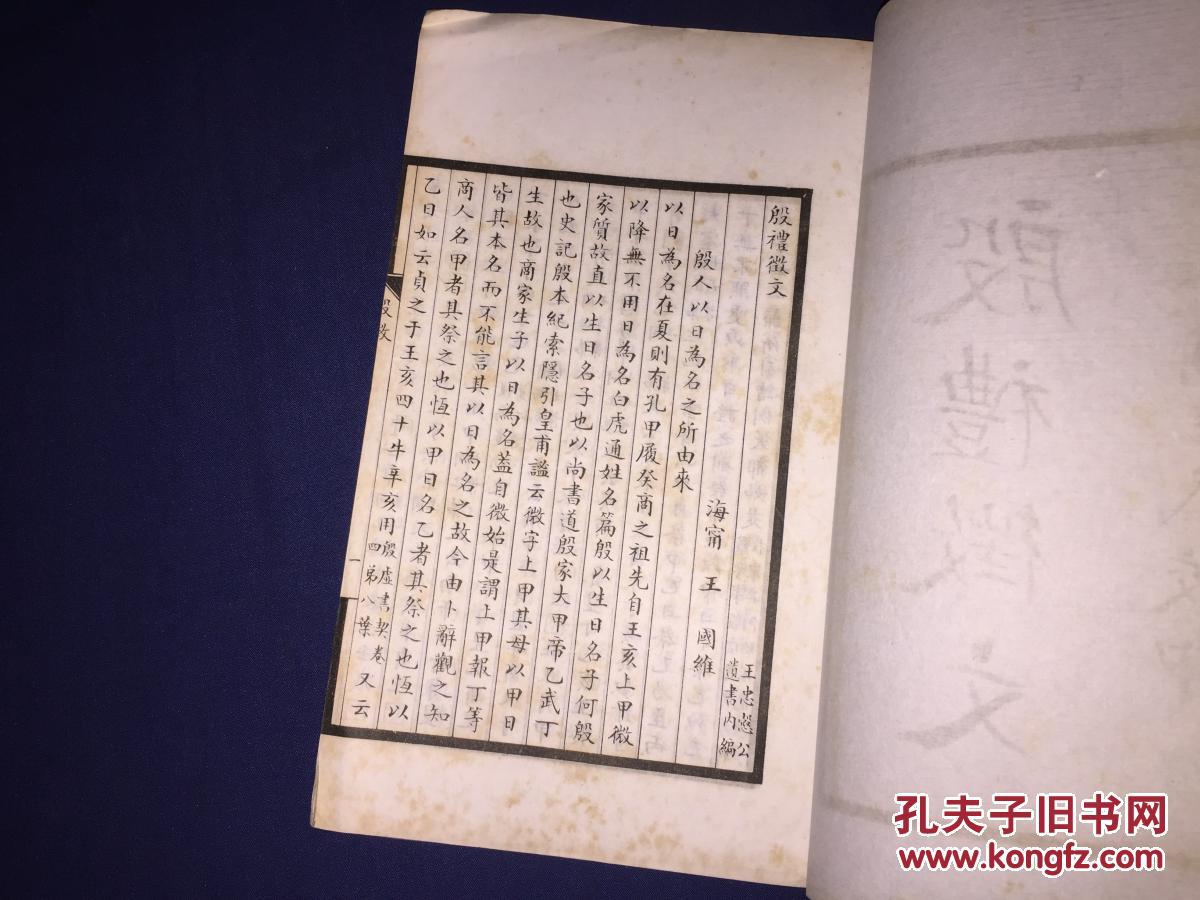 殷禮徵文
王忠慤公
遺書內編
海甯 王 國維
殷人以日為名之所由來
以日為名在夏則有孔甲履癸商之祖先自王亥上甲微
以降無不用日為名白虎通姓名篇殷以生日名子何殷
家質故直以生日名子也以尚書道殷家大甲帝乙武丁
也史記殷本紀索隱引皇甫謐云微字上甲其母以甲日
生故也商家生子以日為名蓋自微始是謂上甲報丁等
皆其本名而不能言其以日為名之故今由卜辭觀之知
商人名甲者其祭之也恆以甲日名乙者其祭之也恆以
乙日如云貞之于王亥四十牛辛亥用殷虛書契卷四弟八葉又云
殷
一
殷禮徵文
孔夫子旧书网
www.kongfz.com